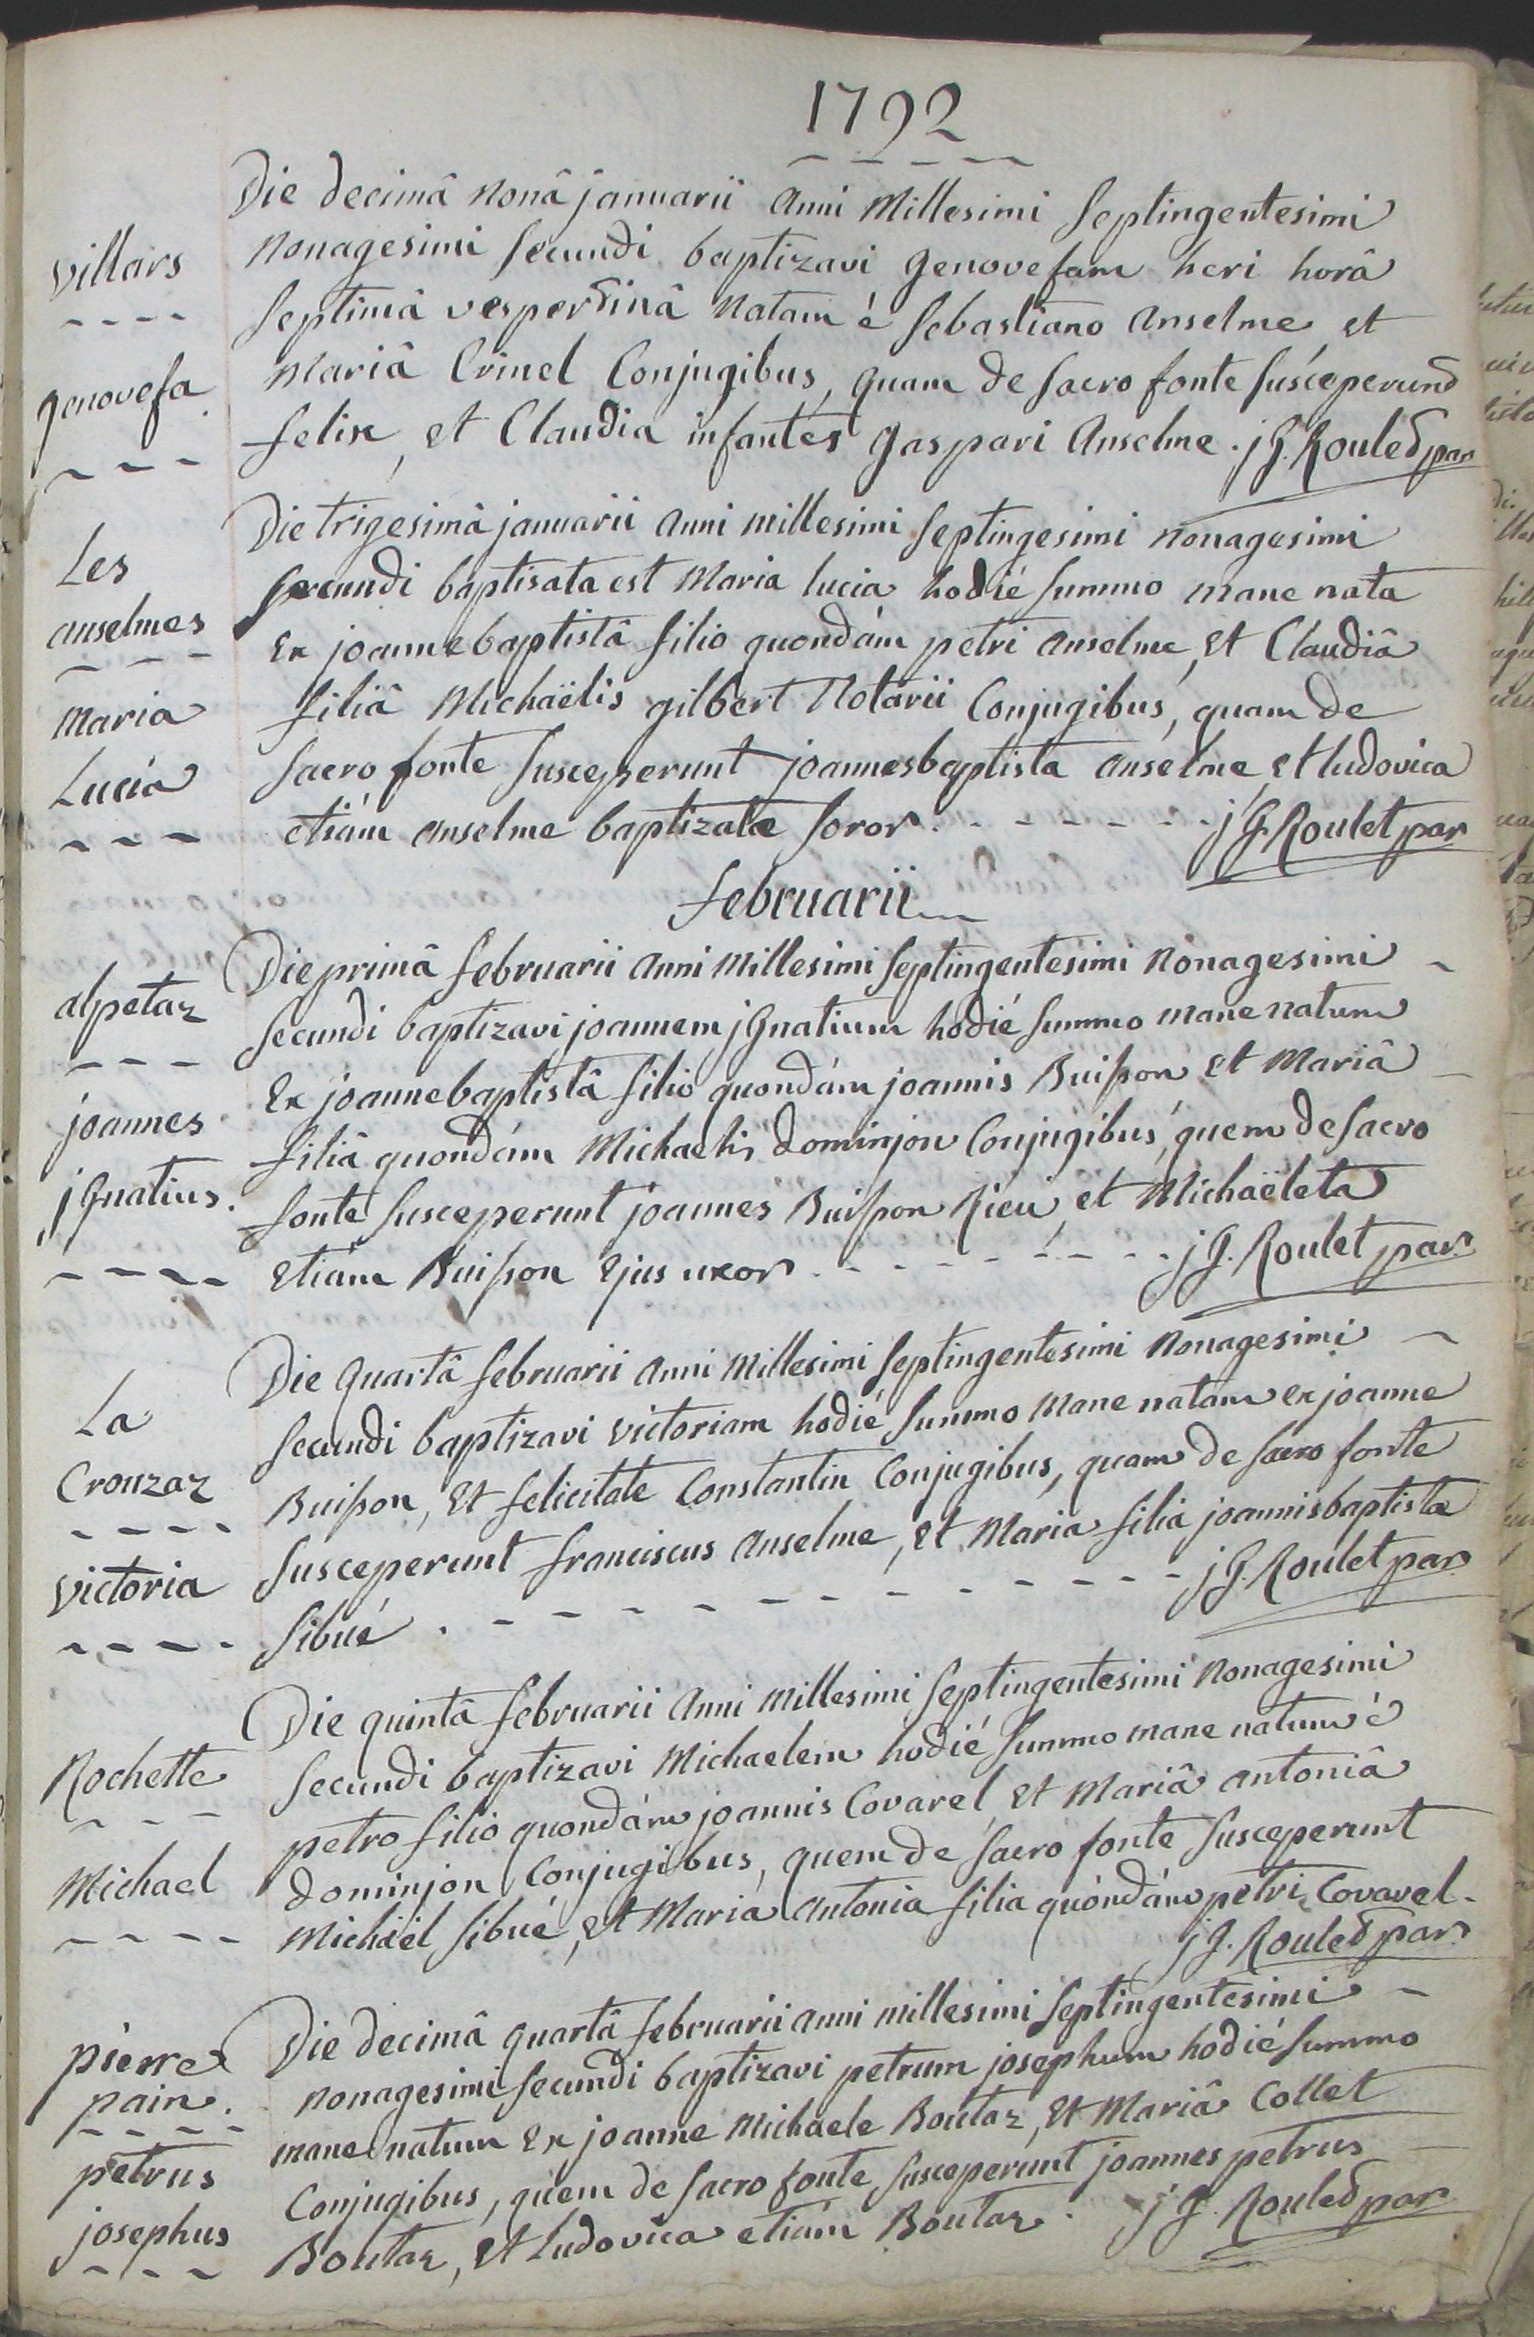 1792
villars
genovefa
Die decimâ nonâ januarii anni Millesimi Septingentesimi
nonagesimi secundi baptizavi genovefam heri horâ
septimâ vespertinâ natam é Sebastiano anselme et
mariâ Crinel Conjugibus, quam de sacro fonte susceperunt
felix, et Claudia infantes gaspari anselme. j G. Roulet par
Les
anselmes
maria
Lucia
Die trigesimâ januarii anni millesimi septingesimi nonagesimi
secundi baptisata est Maria lucia hodié summo mane nata
Ex joannebaptistâ filio quondám petri anselme, Et Claudiâ
filiâ Michaëlis gilbert Notarii Conjugibus, quam de
sacro fonte susceperunt joannesbaptista anselme, et ludovica
etiám anselme baptizatæ soror. j G. Roulet par
februarii
alpetaz
joannes
jGnatius.
Die primâ februarii anni millesimi septingentesimi nonagesimi
secundi baptizavi joannem jGnatium hodié summo mane natum
Ex joannebaptistâ filio quondám joannis Buisson et Mariâ
filiâ quondám Michaelis dominjon Conjugibus, quem de sacro
fonte susceperunt joannes Buisson Rieu, et Michaëleta
etiám Buisson Ejus uxor. j G. Roulet par
La
Crouzaz
victoria
Die quartâ februarii anni Millesimi septingentesimi nonagesimi
secundi baptizavi victoriam hodié summo mane natam ex joanne
Buisson, Et felicitate Constantin Conjugibus, quam de sacro fonte
susceperunt franciscus anselme, et Maria filia joannisbaptistæ
sibué. j G. Roulet par
Rochette
Michael
Die quintâ februarii anni millesimi septingentesimi nonagesimi
secundi baptizavi Michaelem hodié summo mane natum é
petro filio quondám joannis Covarel, Et Mariâ antoniâ
dominjon Conjugibus, quem de sacro fonte susceperunt
Michaël sibué, et Maria antonia filia quondám petri Covarel.
j G. Roulet par
pierre
pain.
petrus
josephus
Die decimâ quartâ februarii anni millesimi septingentesimi
nonagesimi secundi baptizavi petrum josephum hodié summo
mane natum Ex joanne Michaele Boutaz, Et Mariâ Collet
Conjugibus, quem de sacro fonte susceperunt joannes petrus
Boutaz, et ludovica etiám Boutaz. j G. Roulet par